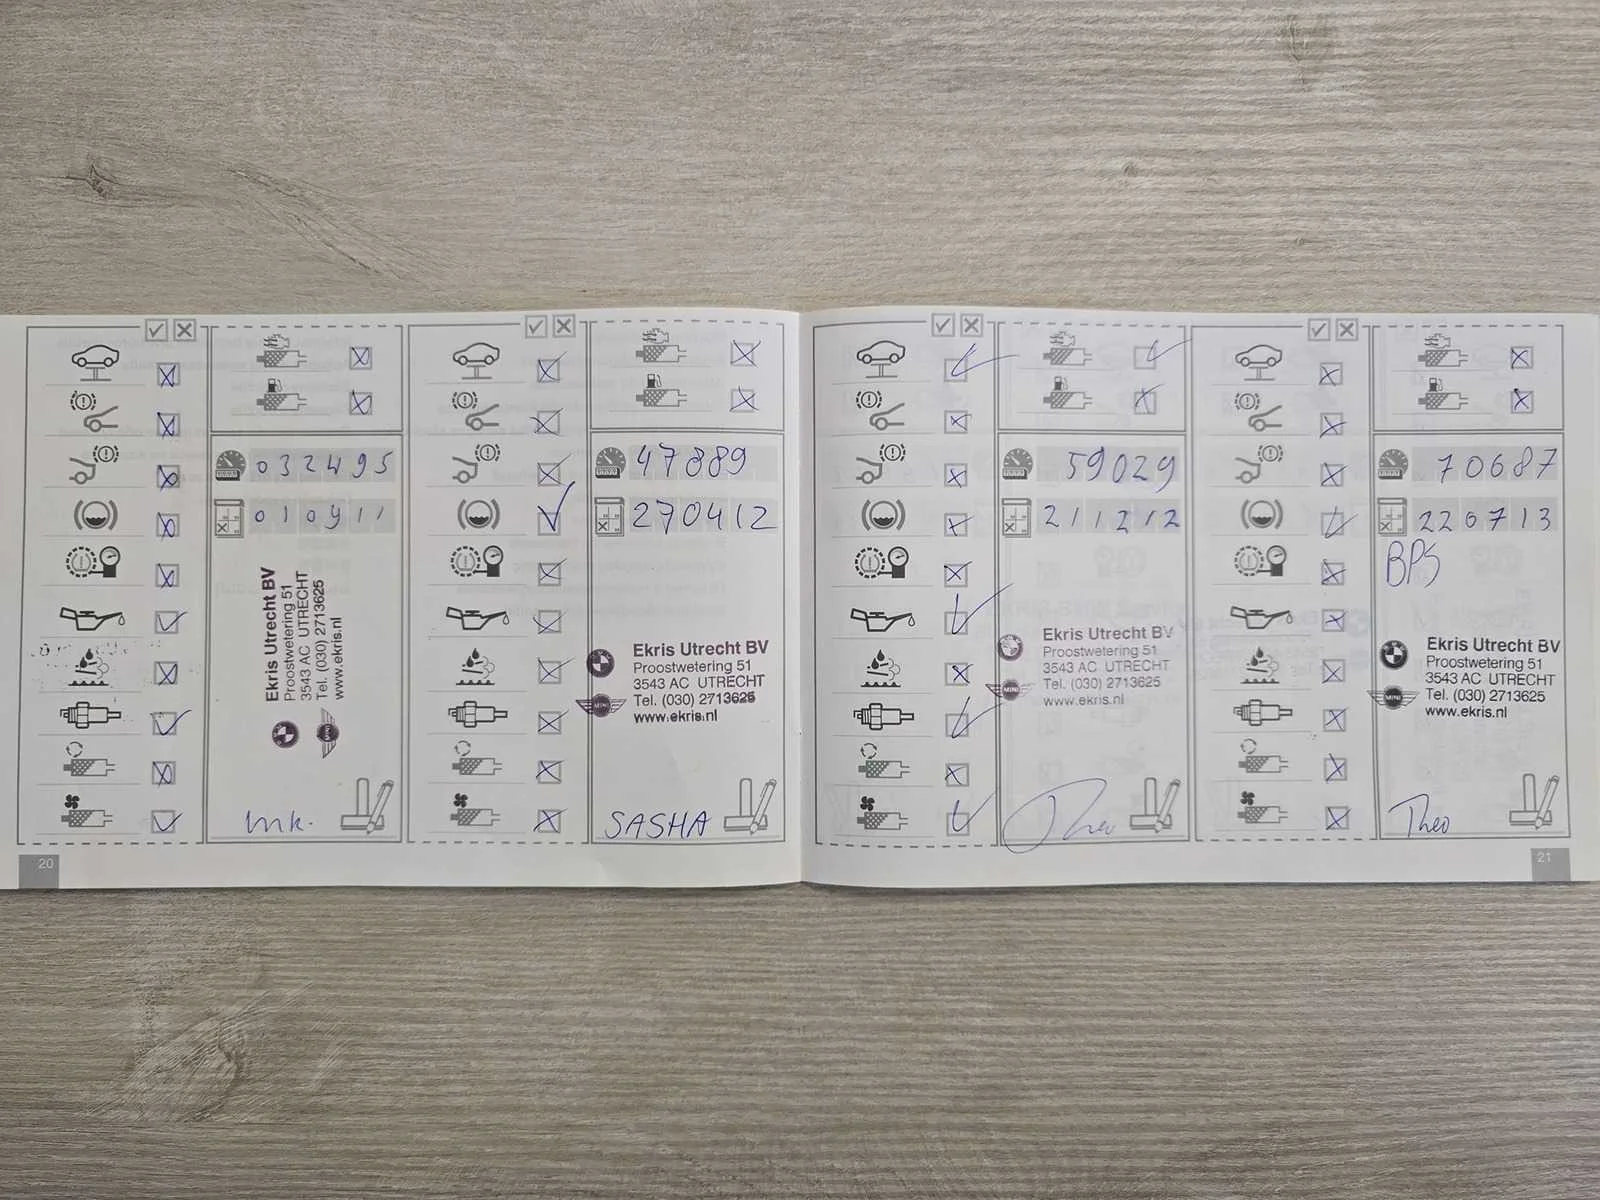 032495
010911
Ekris Utrecht BV
Proostwetering 51
3543 AC UTRECHT
Tel. (030) 2713625
www.ekris.nl
MINI
mk.
20
47889
270412
Ekris Utrecht BV
Proostwetering 51
3543 AC UTRECHT
Tel. (030) 2713625
www.ekris.nl
MINI
SASHA
59029
211212
Ekris Utrecht BV
Proostwetering 51
3543 AC UTRECHT
Tel. (030) 2713625
www.ekris.nl
MINI
Theo
70687
220713
BPS
Ekris Utrecht BV
Proostwetering 51
3543 AC UTRECHT
Tel. (030) 2713625
www.ekris.nl
MINI
Theo
21